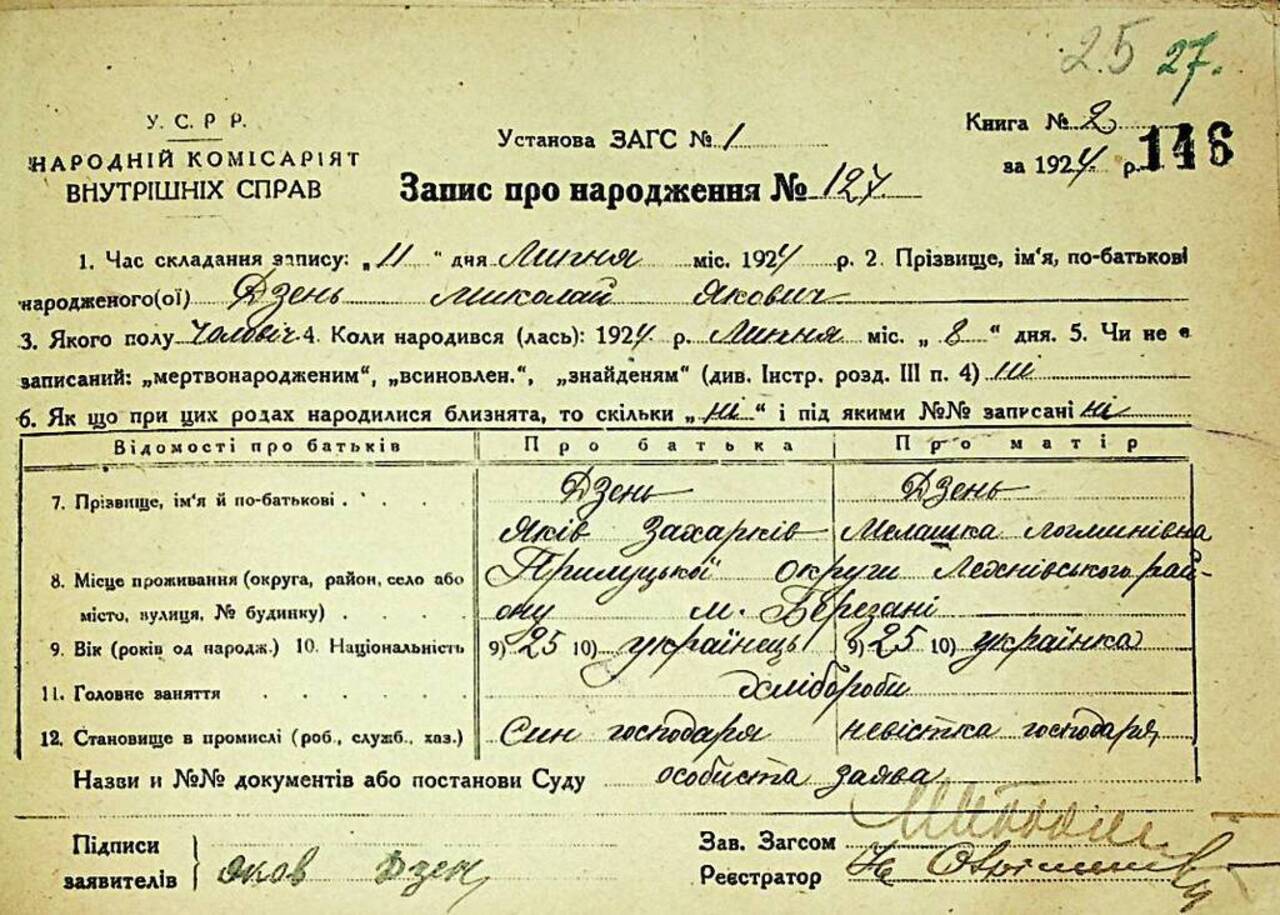 25 27.
У. С. Р Р.
НАРОДНІЙ КОМІСАРІЯТ
ВНУТРІШНІХ СПРАВ
Установа ЗАГС № 1
Запис про народження № 127.
Книга № 2
за 1924 р.
146
1. Час складання запису: „11" дня Липня міс. 1924 р. 2. Прізвище, ім'я, по-батькові
народженого(ої) Дзень Миколай Якович
3. Якого полу чоловіч 4. Коли народився (лась): 1924 р. Липня міс. „8" дня. 5. Чи не є
записаний: „мертвонародженим", „всиновлен.", „знайденям" (див. Інстр. розд. III п. 4) ні
6. Як що при цих родах народилися близнята, то скільки „ні" і під якими №№ записані ні
Відомості про батьків Про батька Про матір
7. Прізвище, ім'я й по-батькові . . . . Дзень Дзень
Яків Захарків Мелашка Логминівна
8. Місце проживання (округа, район, село або Прилуцької округи Лехнівського рай-
місто, вулиця, № будинку) . . . . ону м. Березані
9. Вік (років од народж.) 10. Національність 9) 25 10) українець 9) 25 10) українка
11. Головне заняття . . . . . . хлібороби
12. Становище в промислі (роб., служб., хаз.) Син господаря невістка господаря
Назви и №№ документів або постанови Суду особиста заява
Підписи
заявителів яков Дзен
Зав. Загсом
Реєстратор